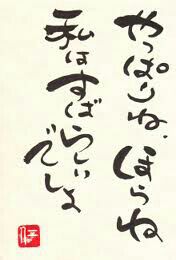 やっぱりね、ほらね
私はすばらしい
でしょ